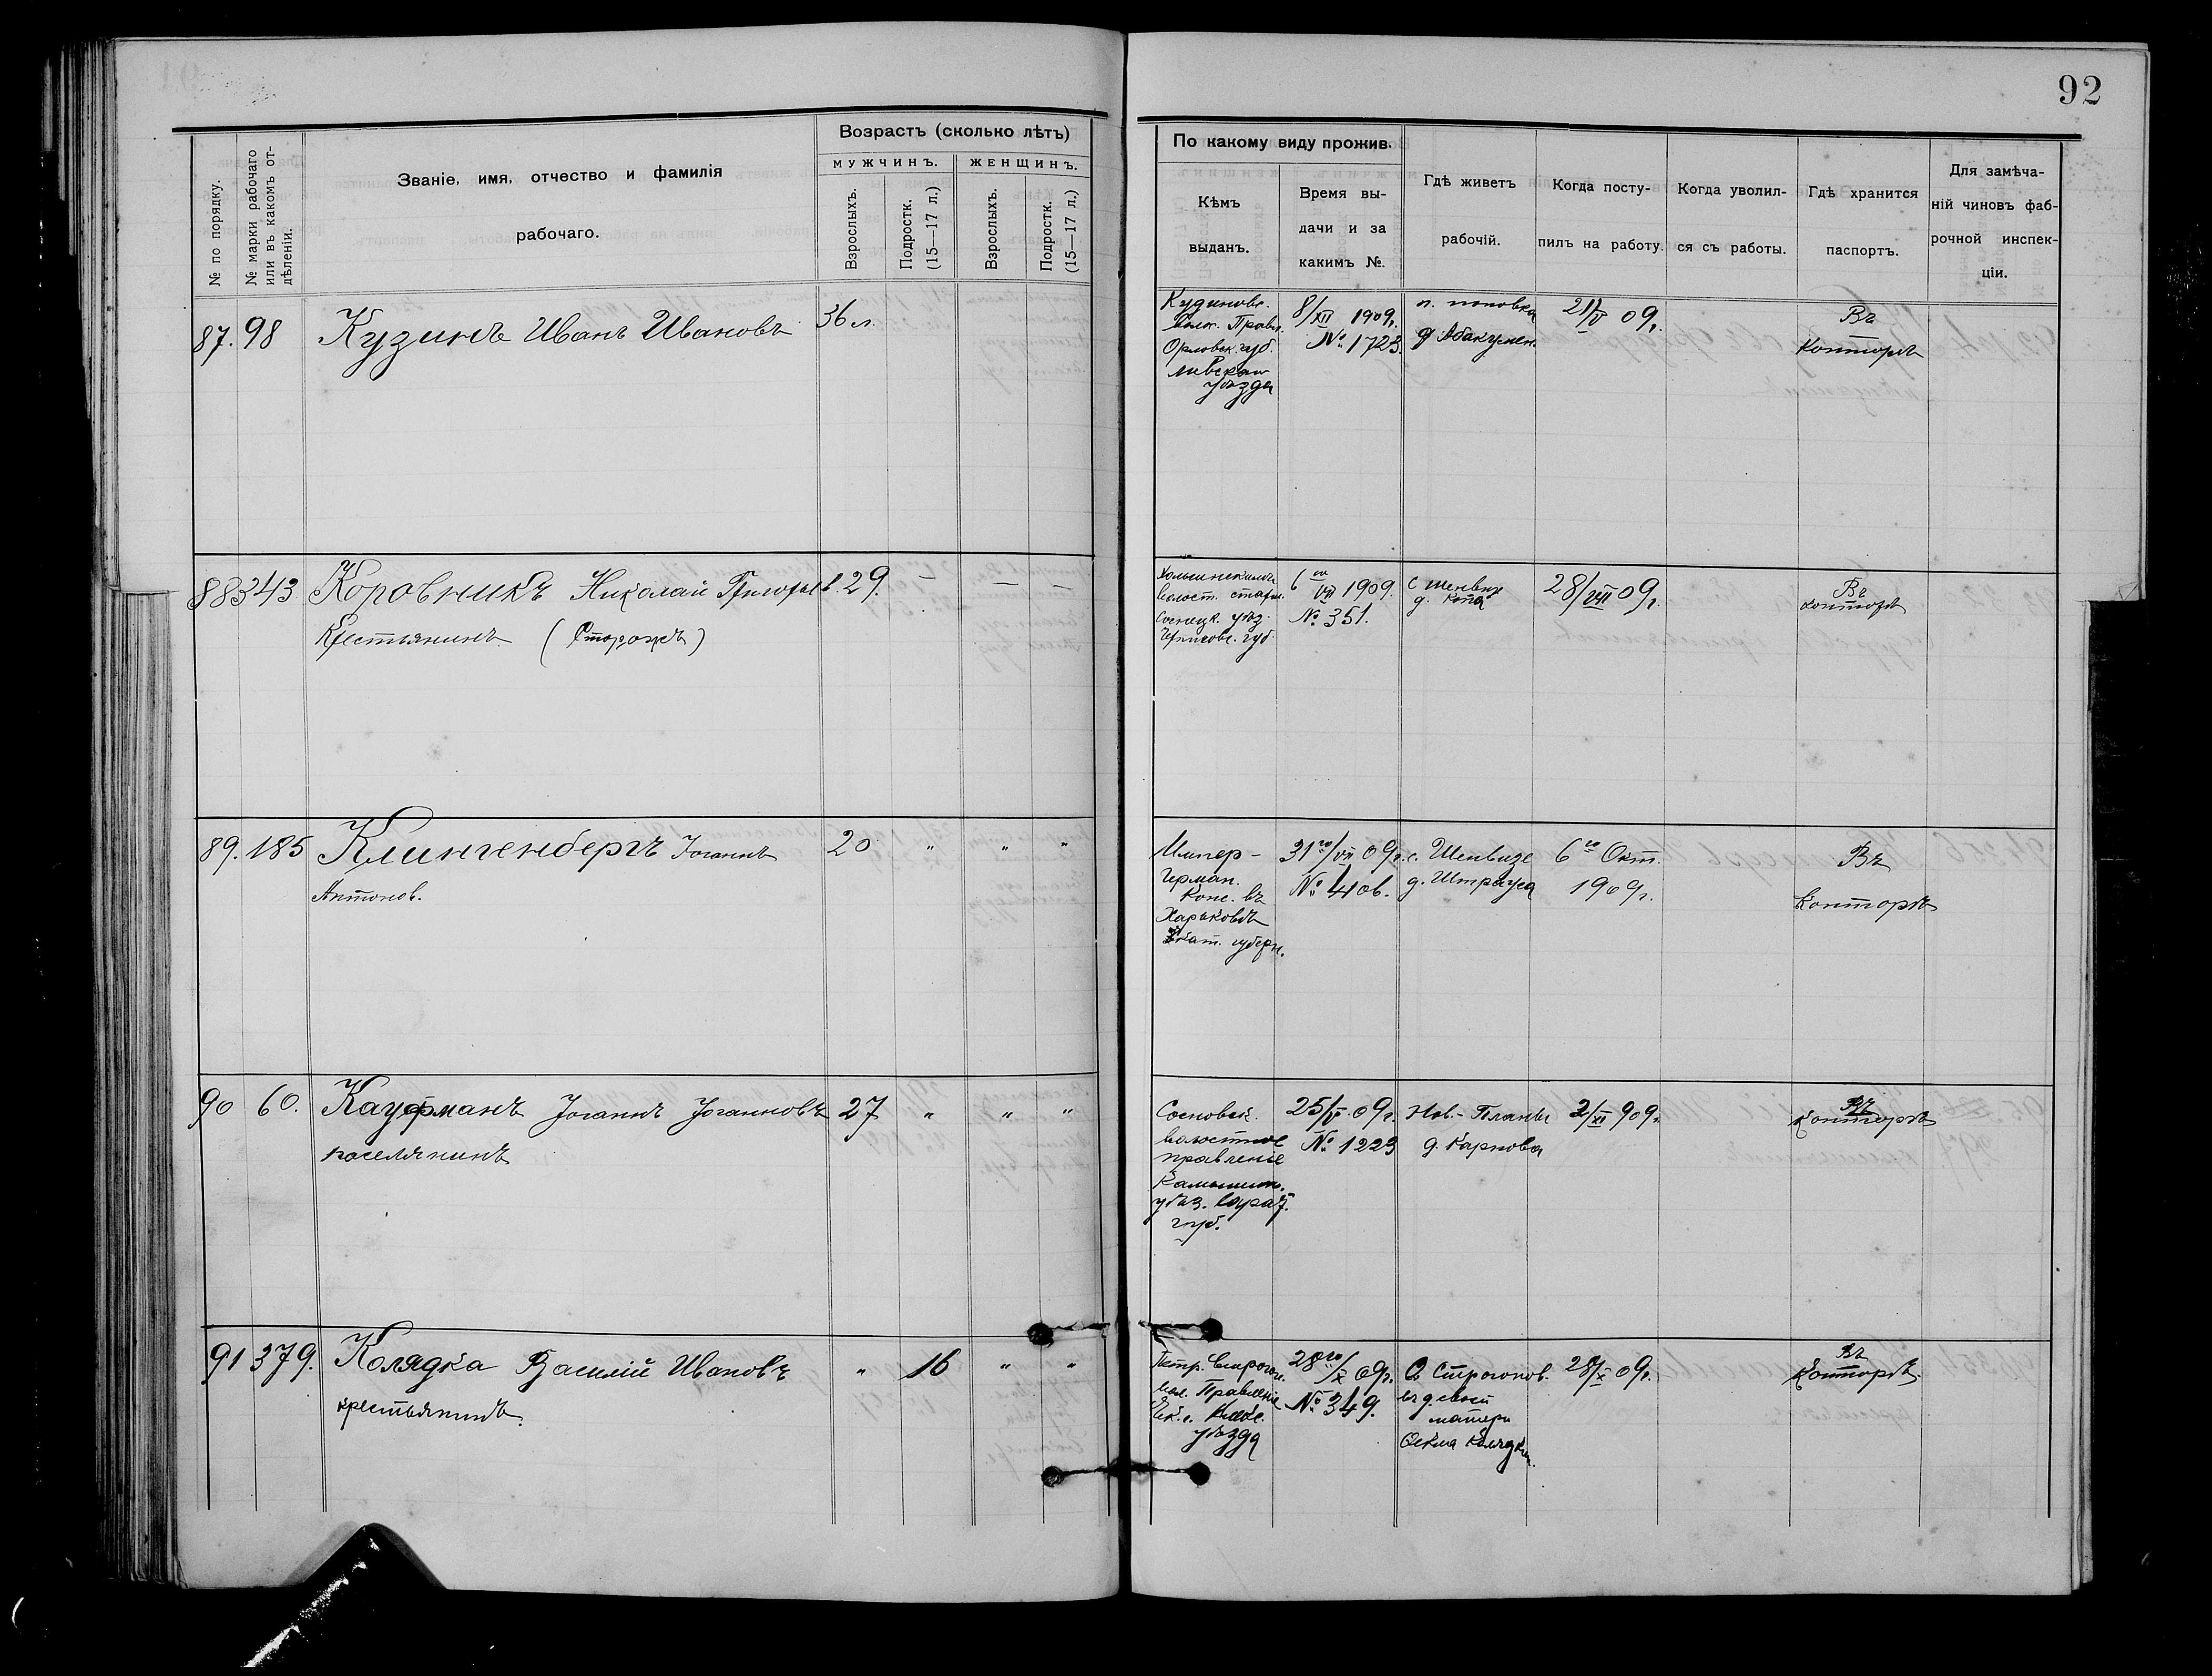 92
№ по порядку.
№ марки рабочаго или въ какомъ отдѣленіи.
Званіе, имя, отчество и фамилія
рабочаго.
Возрастъ (сколько лѣтъ)
МУЖЧИНЪ.
ЖЕНЩИНЪ.
Взрослыхъ.
Подростк. (15—17 л.)
Взрослыхъ.
Подростк. (15—17 л.)
По какому виду прожив.
Кѣмъ
выданъ.
Время вы-
дачи и за
какимъ №.
Гдѣ живетъ
рабочій.
Когда посту-
пилъ на работу.
Когда уволил-
ся съ работы.
Гдѣ хранится
паспортъ.
Для замѣча-
ній чиновъ фаб-
рочной инспек-
ціи.
87. 98 Кузинъ Иванъ Ивановъ 36 л.
Орловск. губ.
уѣзда
8/XII 1909г.
№ 1723.
п. поповка
21/V 09г.
Въ
Конторѣ
88 343 Коровникъ Николай Григорьев. 29. — — —
Крестьянинъ (Сторожъ)
волост. старш.
Сосницк. уѣз.
Чернигов. губ.
6 го VII 1909.
№ 351.
28/VIII 09г.
Въ
конторѣ
89. 185 Клингенбергъ Іоганнъ 20 " " "
Антонов.
Импер-
Герман.
Конс. въ
Харьковѣ
31го/VII 09г.
№ 406.
с. Шенвизе
д. Штрауса
6го Окт.
1909г.
Въ
Конторѣ
90 60. Кауфманъ Іоганнъ Іоганновъ 27 " " "
поселянинъ
Сосновск.
волостное
правленіе
Камышин.
уѣз. Сарат.
губ.
25/V 09г.
№ 1223
Нов.- Планы
д. Карпова
2/XI 909г.
Въ
Конторѣ
91 379. Колядка Василій Ивановъ " 16 " "
крестьянинъ.
вол. Правленіе
уѣзда
28го/X 09г.
№ 349.
С Строгонов.
въ д. свой
матери
28/X 09г.
Въ
Конторѣ.